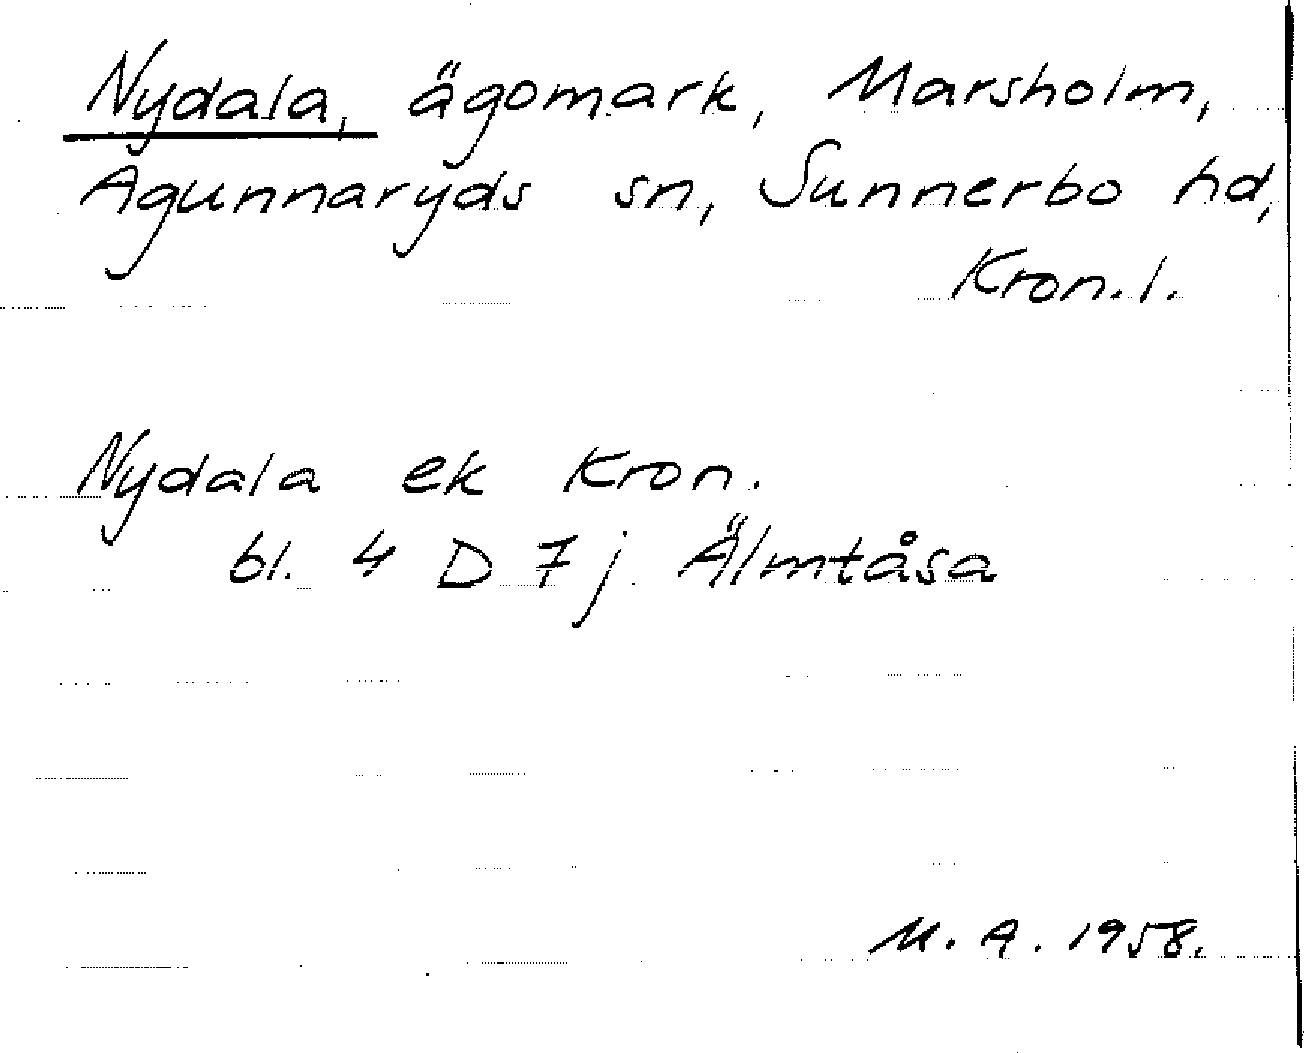 Nydala, ägomark, Marsholm,
Agunnaryds sn, Sunnerbo hd,
Kron.l.
Nydala ek Kron.
bl. 4 D 7 j Älmtåsa
M. A. 1958.